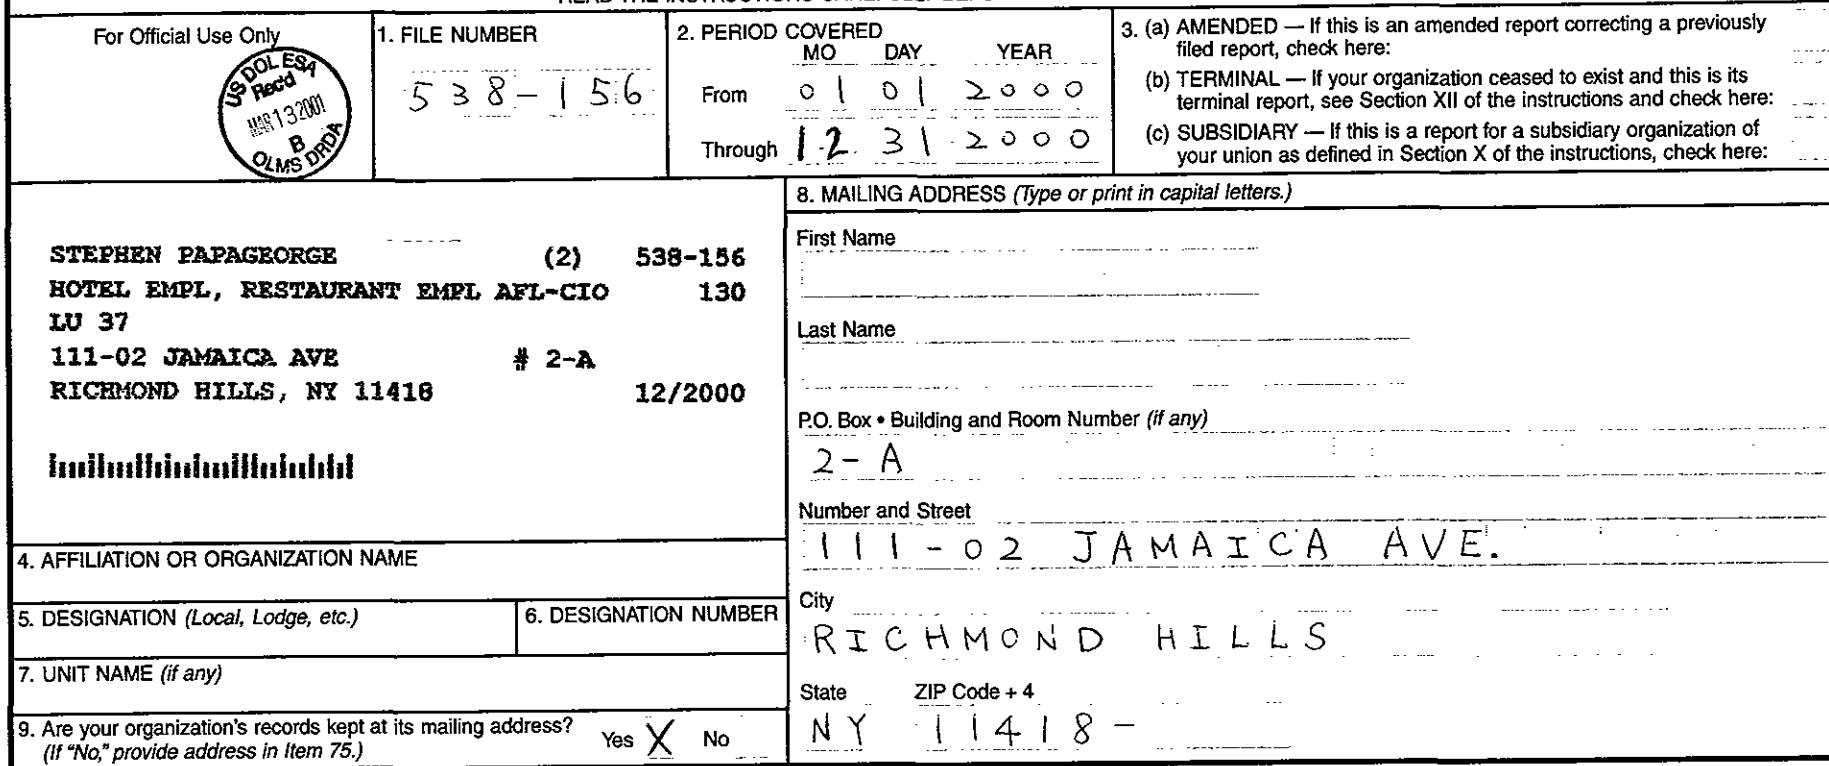 For Official Use Only
US DOL ESA
Rec'd
MAR 13 2001
B
OLMS DRDA
1. FILE NUMBER
538-156
2. PERIOD COVERED
MO DAY YEAR
From 01 01 2000
Through 12 31 2000
3. (a) AMENDED — If this is an amended report correcting a previously
filed report, check here:
(b) TERMINAL — If your organization ceased to exist and this is its
terminal report, see Section XII of the instructions and check here:
(c) SUBSIDIARY — If this is a report for a subsidiary organization of
your union as defined in Section X of the instructions, check here:
STEPHEN PAPAGEORGE (2) 538-156
HOTEL EMPL, RESTAURANT EMPL AFL-CIO 130
LU 37
111-02 JAMAICA AVE # 2-A
RICHMOND HILLS, NY 11418 12/2000
4. AFFILIATION OR ORGANIZATION NAME
5. DESIGNATION (Local, Lodge, etc.)
6. DESIGNATION NUMBER
7. UNIT NAME (if any)
9. Are your organization's records kept at its mailing address? Yes X No
(If "No," provide address in Item 75.)
8. MAILING ADDRESS (Type or print in capital letters.)
First Name
Last Name
P.O. Box • Building and Room Number (if any)
2-A
Number and Street
111-02 JAMAICA AVE.
City
RICHMOND HILLS
State ZIP Code + 4
NY 11418-